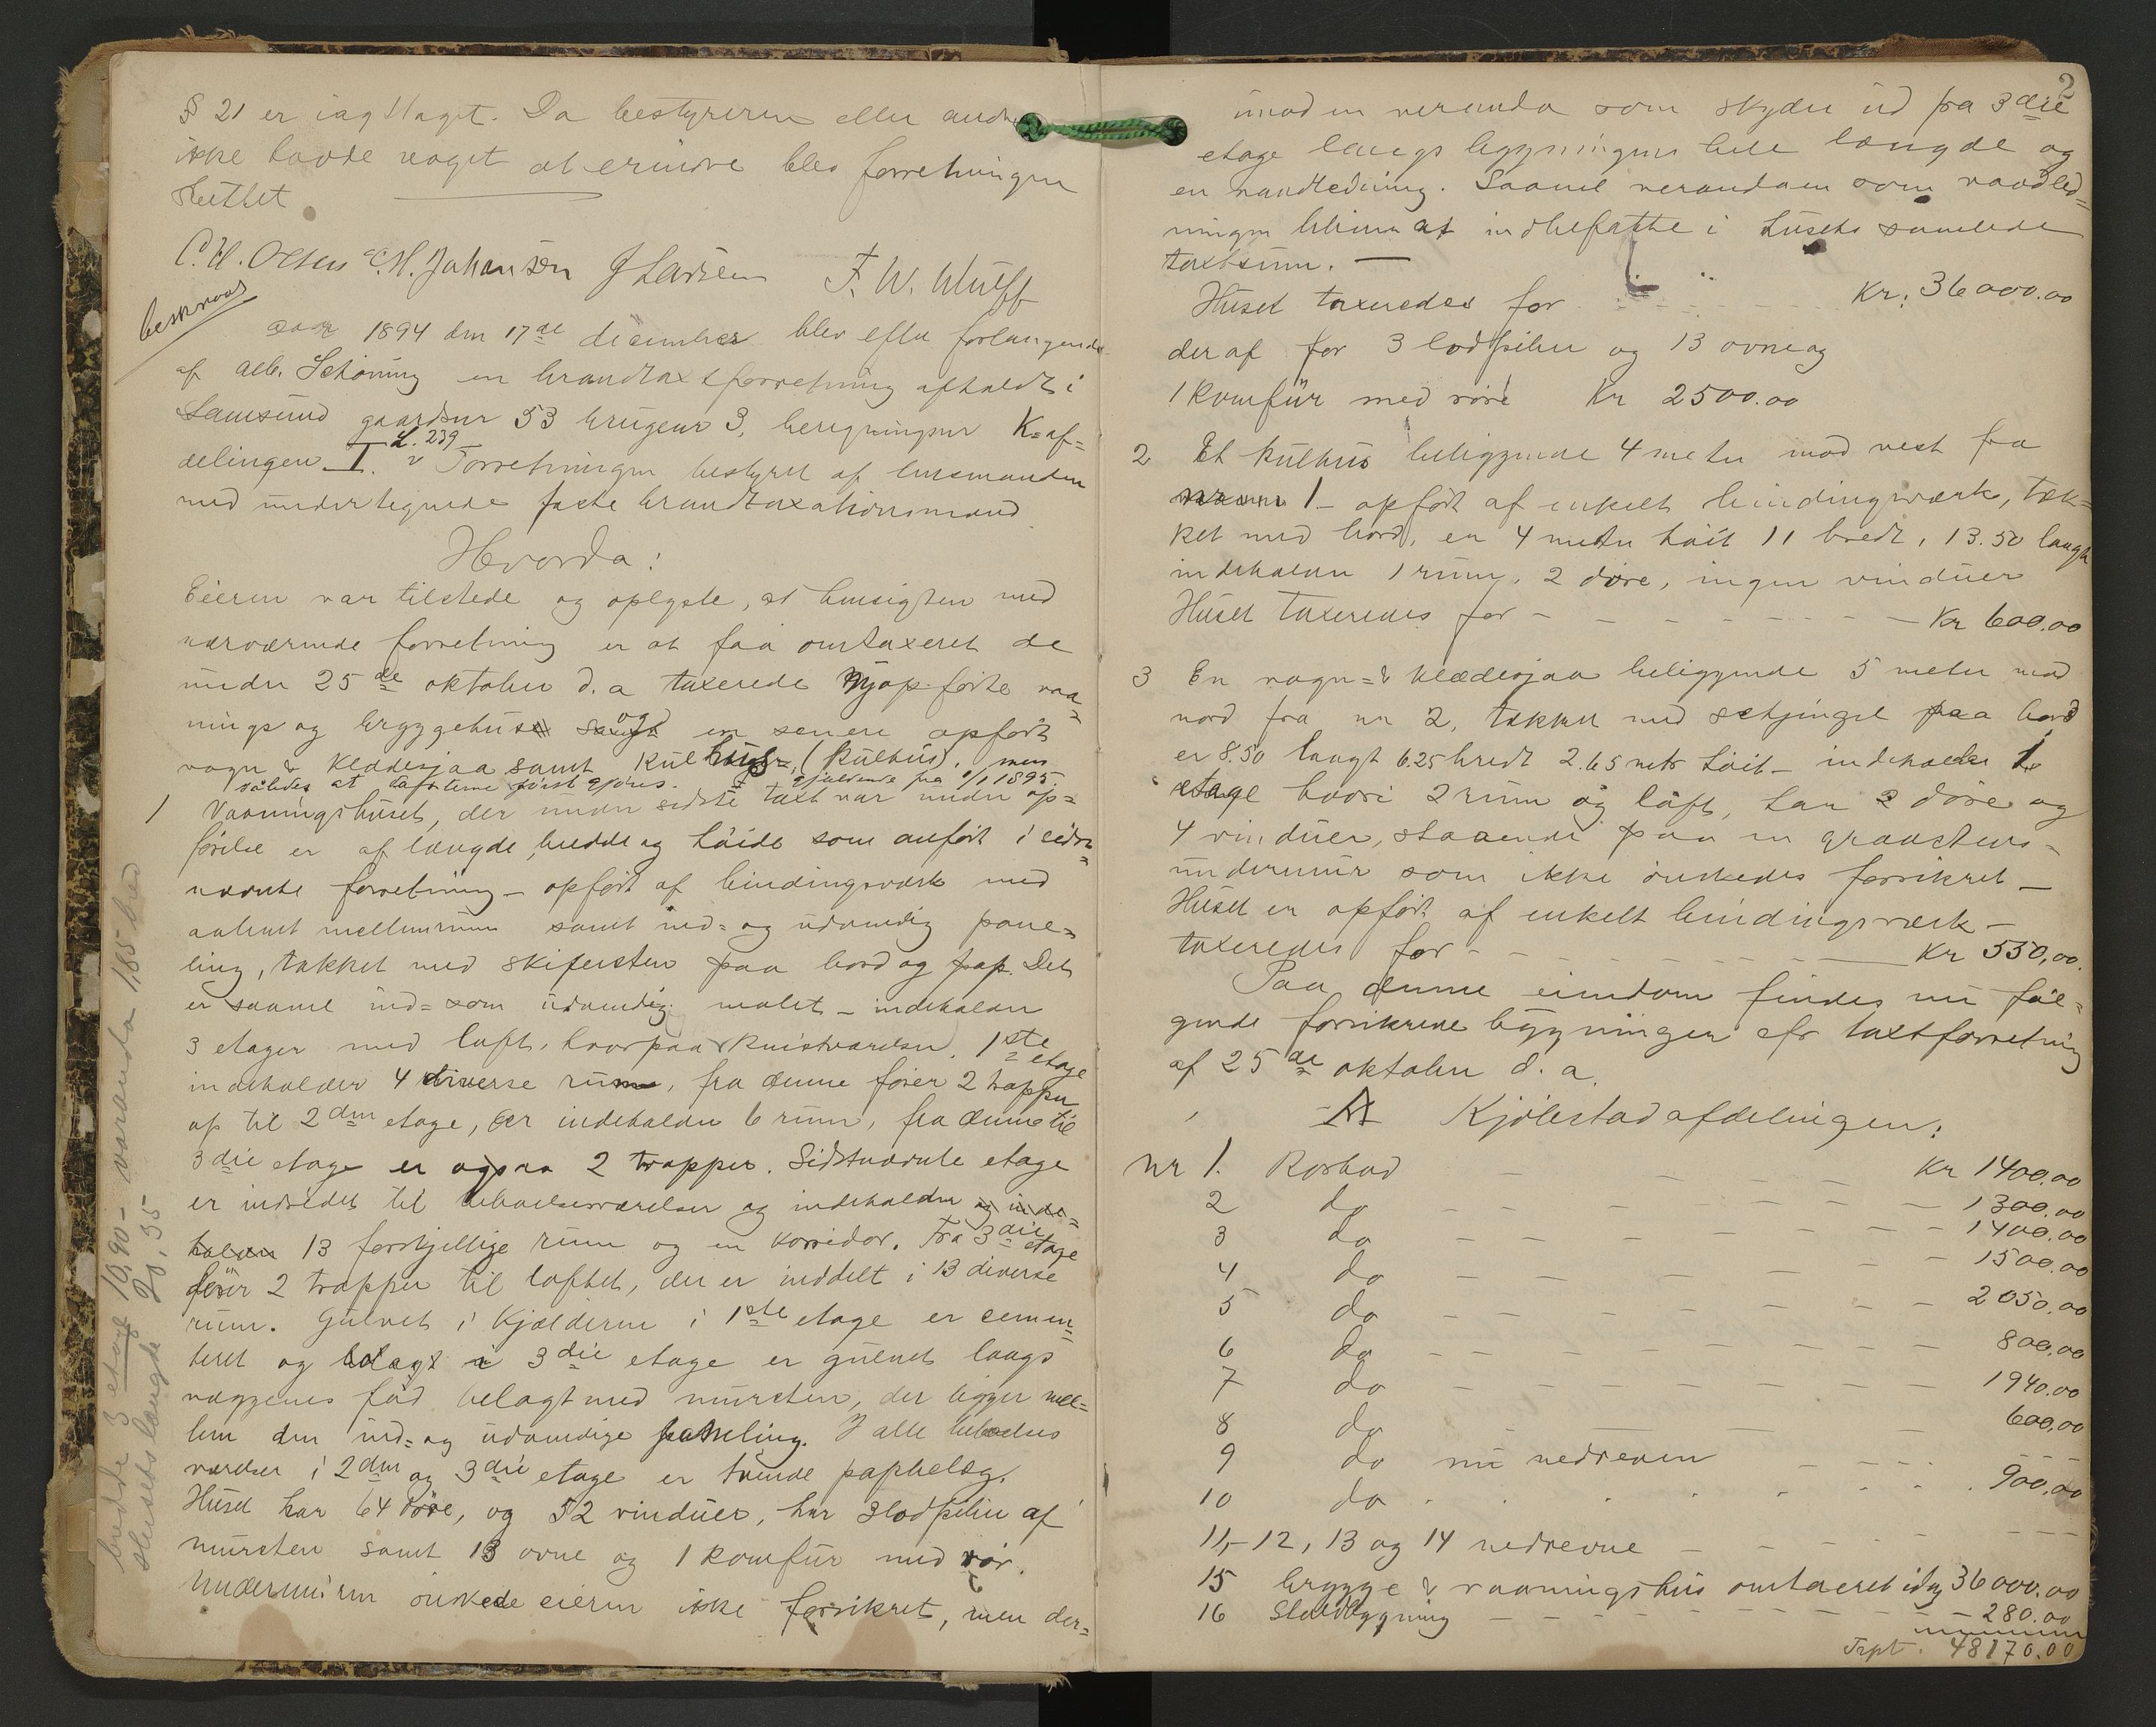 § 21 er iagttaget. Da bestyreren eller andre
ikke havde noget at erindre blev forretningen
sluttet
C. H. Olsen C. M. Johansen J Larsen F. W. Wulff
beskrevet
Aar 1894 den 17de december blev efter forlangende
af Alb. Schöning en brandtaxtforretning afholdt i
Samsund gaardsnr 53 brugsnr 3, beregningsnr K=af=
delingen I. L. 239 Forretningen bestyret af lensmanden
med undertegnede faste brandtaxationsmænd
Hvorda:
Eieren var tilstede og oplyste, at hensigten med
nærværende forretning er at faa omtaxeret de
under 25de oktober d. a taxerede nyopførte vaa=
nings og bryggehuse og en senere opført
vagn & kleddesjaa samt kulhus, (kulhus), men
således at taxterne først gjøres gjældende fra 1/1 1895.
1 Vaaningshuset, der under sidste taxt var under op=
førelse er af længde, bredde og høide som anført i sidst=
nævnte forretning – opført af bindingsverk med
aabent mellemrum samt ind= og udvendig pane=
ling, tækket med skifersten paa bord og pap. Det
er saavel ind= som udvendig malet – indeholder
3 etager med loft, hvorpaa kvistværelser. 1ste etage
indeholder 4 diverse rum, fra denne fører 2 trapper
op til 2den etage, der indeholder 6 rum, fra denne til
3die etage er ogsaa 2 trapper. Sidstnævnte etage
er indredet til beboelsesværelser og indeholder og inde=
holder 13 forskjellige rum og en korridor. Fra 3die etage
fører 2 trapper til loftet, der er inddelt i 13 diverse
rum. Gulvet i kjælderen i 1ste etage er cemen=
teret og belagt i 3die etage er gulvet langs
væggenes fod belagt med mursten, der ligger mel=
lem den ind= og udvendige paneling. I alle beboelses
værelser i 2den og 3die etage er tvende papbelæg.
Huset har 64 døre, og 52 vinduer, har 3 lodpiber af
mursten samt 13 ovne og 1 komfür med rør.
Undermuren ønskede eieren ikke forsikret, men der=
bredde 3 etage 10,90 – varanda 185 bred
Husets længde 20,35 –
2
imod en veranda som skyder ud fra 3die
etage langs bygningens hele længde og
en vandledning. Saavel verandaen som vandled=
ningen bliver at indbefatte i husets samlede
taxtsum. —
Huset taxeredes for Kr: 36000.00
deraf for 3 lodpiber og 13 ovne og
1 komfür med rør Kr 2500.00
2 Et kulhus beliggende 4 meter mod vest fra
1 – opført af enkelt bindingsværk, tæk=
ket med bord, er 4 meter høit 11 bredt, 13.50 langt
indeholder 1 rum, 2 døre, ingen vinduer
Huset taxeredes for – – – Kr 600.00
3 En vogn= & klædesjaa beliggende 5 meter mod
nord fra nr 2, tækket med schjingel paa bord
er 8.50 langt 6.25 bredt 2.65 mtr høit – indeholder 1
etage hvori 2 rum og loft, har 2 døre og
4 vinduer, staaende paa en graastens=
undermur som ikke ønskedes forsikret –
Huset er opført af enkelt bindingsverk –
taxeredes for – – – Kr 550,00.
Paa denne eiendom findes nu føl=
gende forsikrede bygninger efr taxtforretning
af 25de oktober d. a.
A Kjølestadafdelingen:
nr 1. Rorbod – – – Kr 1400,00
2 do – – – 1300.00
3 do – – – 1400.00
4 do – – – 1500.00
5 do – – – 2050.00
6 do – – – 800,00
7 do – – – 1940.00
8 do – – – 600,00
9 do nu nedreven – – –
10 do – – – 900,00
11,– 12, 13 og 14 nedrevne – – –
15 brygge & vaaningshus omtaxeret idag 36000.00
16 Staldbygning – – – 280.00
Trpt. 48170.00